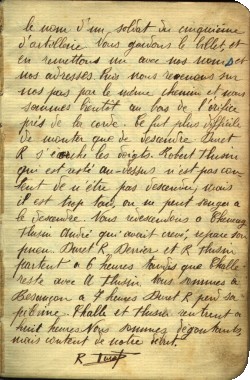 le nom d'un soldat du cinquième
d'artillerie. Nous gardons le billet et
en remettons un avec nos noms et
nos adresses. Puis nous revenons sur
nos pas par le même chemin et nous
sommes bientôt au bas de l'orifice
près de la corde. Ce fut plus difficile
de monter que de descendre Duret
R s'écorche les doigts. Robert Thusin
qui est resté au-dessus n'est pas con-
tent de n'être pas descendu, mais
il est trop tard, on ne peut songer à
le descendre. Nous redescendons à
Thusin André qui avait crevé, répare son
pneu. Duret R, et R Thusin
partent à 6 heures tandis que Thalle
reste avec A Thusin. Nous sommes à
Besançon à 7 heures Duret R perd sa
pélerine. Thalle et Thusin rentrent à
huit heures. Nous sommes dégoutants
mais contents de notre début.
R Duret